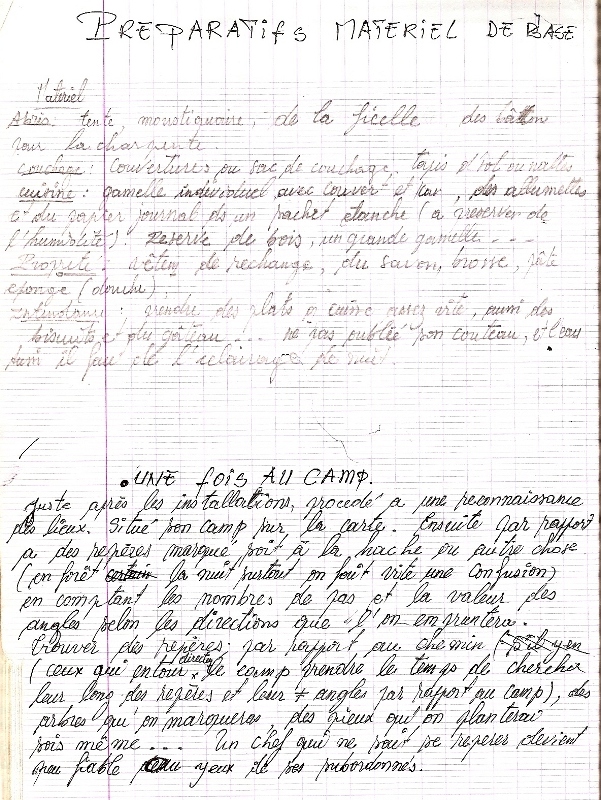 PREPARATIFS MATERIEL DE BASE
Matériel
Abris : tente, moustiquaire, de la ficelle des bâton
pour la charpente.
couchage : couvertures ou sac de couchage, tapis d'sol ou nattes
cuisine : gamelle individuel avec couvert et , des allumettes
et du papier journal ds un pachet étanche (a reserver de
l'humidité) Reserve de bois, un grande gamelle ...
Propreté : vêtem de rechange, du savon, brosse, pâte
eponge (douche)
Intendance : prendre des plats à cuire assez vite, aussi des
biscuits, et du gâteau .... ne pas oublié son couteau, et l'eau
aussi il faut de l'eclairage de nuit.
. UNE fois AU CAMP.
Juste après les installations, procedé a une reconnaissance
des lieux. Situé son camp sur la carte. Ensuite par rapport
a des repères marqué soit à la hache ou autre chose
(en forêt la nuit surtout on fait vite une confusion)
en comptant les nombres de pas et la valeur des
angles selon les directions que l'on empruntera.
Trouver des repères par rapport au chemin (s'il y en
(ceux qui entour directem le camp prendre le temps de chercher
leur long des repères et leur ≠ angles par rapport au camp), des
arbres qu'on marqueras, des pieux qu'on planterai
sois même .... Un chef qui ne sait se reperer devient
peu fiable aux yeux de ses subordonnés.